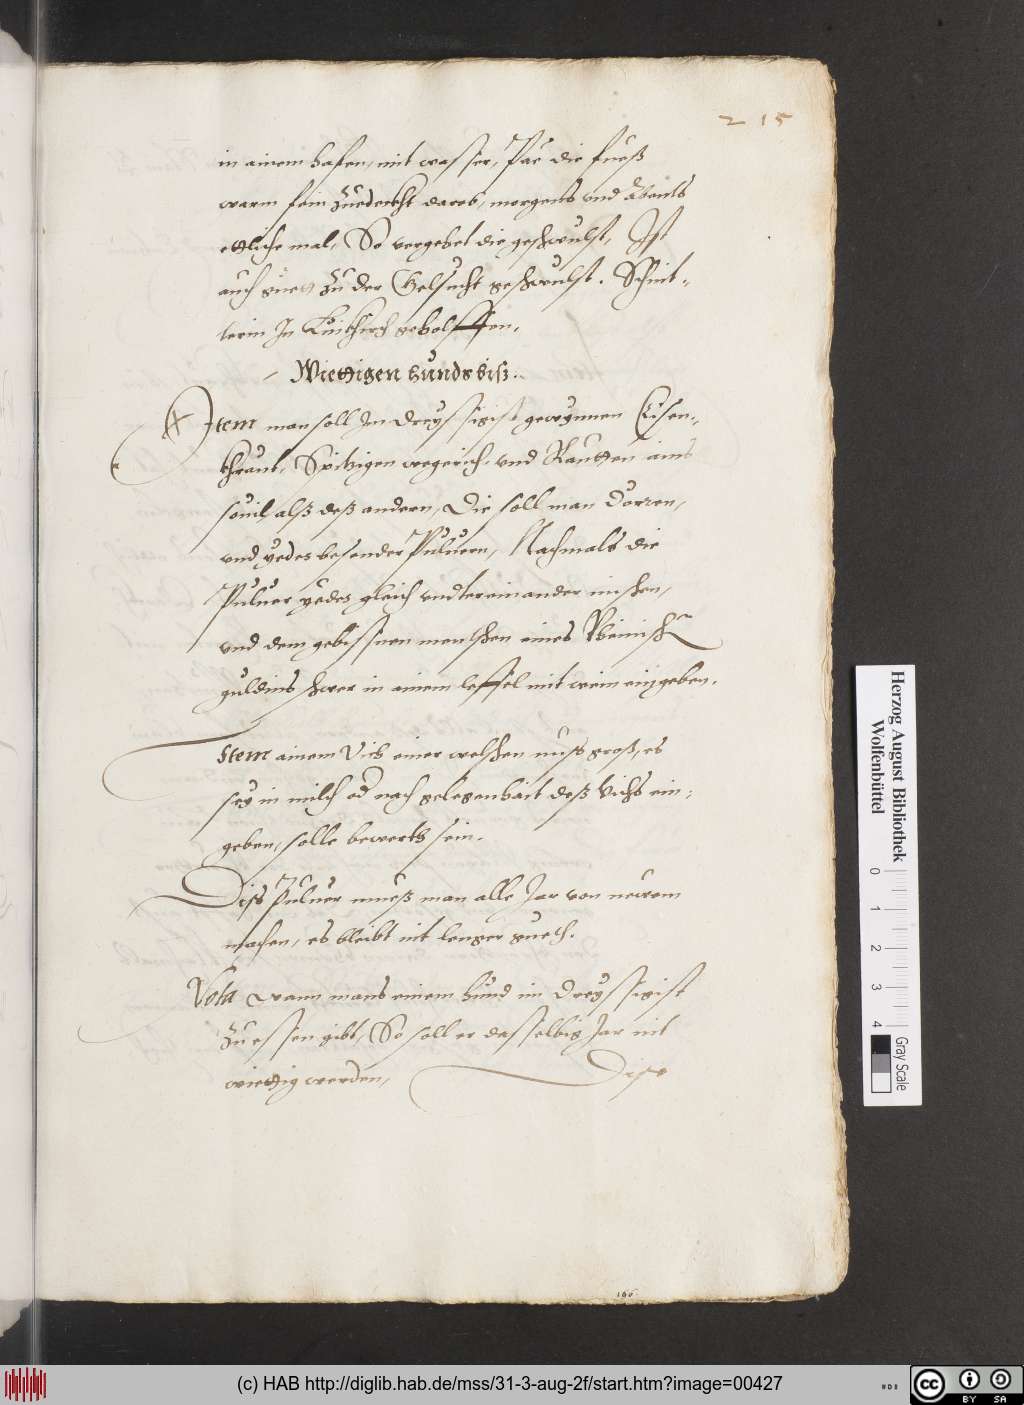 215
in ainem hafen, mit wasser, Pae die fueß
warm sein Zuedeckht darob, morgens und Abents
ettliche mal, So vergehet die geschwulst, Ist
auch guett Zu der Gelsucht geschwulst. Schnit-
terin In Kuikirch geholffen.
Wiettigen hunds biß.
Item man soll Im dreyssigist gewynnen Eisen-
khraut, Spitzigen wegerich, und Rautten ains
souil, alß deß andern, Die soll man dörren,
und yedes besonder Puluern, Nachmals die
Puluer yedes gleich undtereinander mischen,
und dem gebissnen menschen eines Rheinisch
guldins schwer in ainem leffel mit wein eingeben.
Item ainem Vich einer welschen nuss groß, es
sey in milch od nach gelegenhait deß Vichs ein-
geben, solle bewerth sein.
Diss Puluer mueß man alle Jar von newem
machen, es bleibt nit lenger gueth.
Nota wann mans einem hund im dreyssigist
Zu essen gibt, So soll er dasselbig Jar nit
wiettig werden,
Dise
166
Herzog August Bibliothek
Wolfenbüttel
0 1 2 3 4
Gray Scale
(c) HAB http://diglib.hab.de/mss/31-3-aug-2f/start.htm?image=00427
HAB
cc BY SA